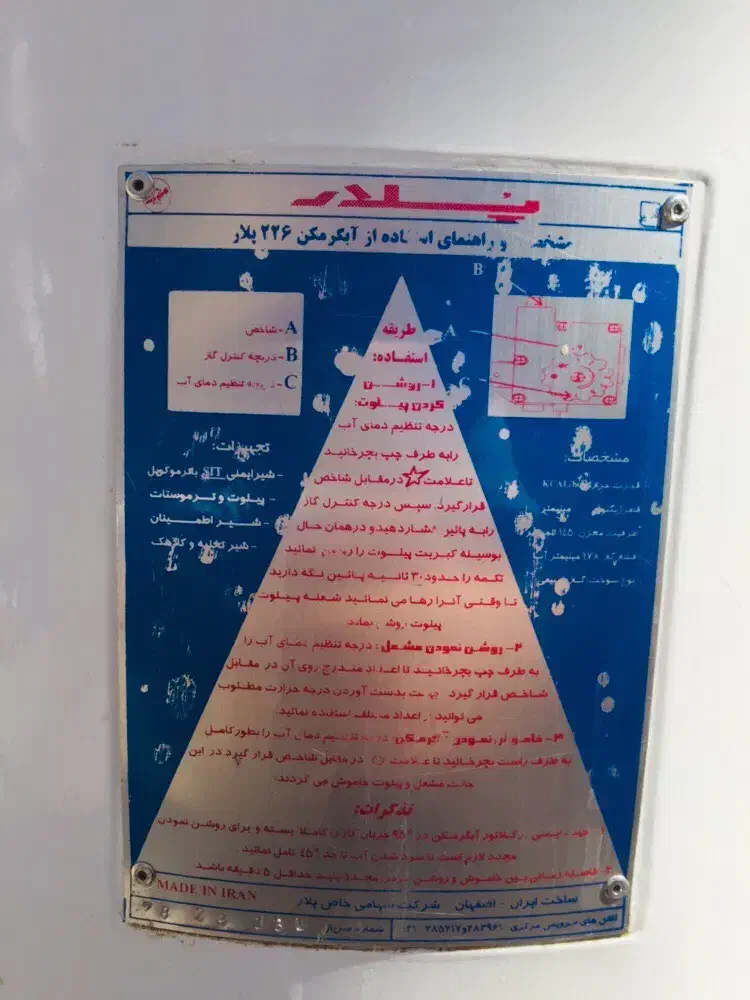 پلار
و راهنمای استفاده از آبگرمکن ۲۲۶ پلار
B
A
C
A - شاخص
B - دریچه کنترل گاز
C - دمای آب
تجهیزات:
- شیر ایمنی SIT با ترموکوپل
- پیلوت و ترموستات
- شیر اطمینان
- شیر تخلیه و
طریقه
استفاده:
۱- روشن
کردن پیلوت:
درجه تنظیم دمای آب
رابه طرف چپ بچرخانید
تا علامت ☆ درمقابل شاخص
قرارگیرد. سپس درجه کنترل گاز
رابه پائین فشاردهید و درهمان حال
بوسیله کبریت پیلوت را روشن نمائید
تکمه را حدود ۳۰ ثانیه پائین نگه دارید
تا وقتی آنرا رها می نمائید شعله پیلوت
پیلوت روشن بماند
۲- روشن نمودن مشعل: درجه تنظیم دمای آب را
به طرف چپ بچرخانید تا اعداد مندرج روی آن در مقابل
شاخص قرار گیرد جهت بدست آوردن درجه حرارت مطلوب
می توانید از اعداد مختلف استفاده نمائید.
۳- خاموش نمودن آبگرمکن: درجه تنظیم دمای آب را بطور کامل
به طرف راست بچرخانید تا علامت در مقابل شاخص قرار گیرد در این
حالت مشعل و پیلوت خاموش می گردند.
مشخصات:
قدرت KCAL/h
میلیمتر
ظرفیت مخزن ۱۴۵
۱۷۸ میلیمتر
نوع سوخت گاز طبیعی
تذکرات:
۱- ایمنی رگلاتور آبگرمکن در ۹۵° جریان گاز را کاملا بسته و برای روشن نمودن
مجدد لازم است تا سرد شدن آب تا حد ۴۵° تامل نمائید.
۲- فاصله زمانی بین خاموش و روشن کردن مجدد باید حداقل ۵ دقیقه باشد
MADE IN IRAN
ساخت ایران - اصفهان شرکت سهامی خاص پلار
شماره سریال
تلفن های سرویس مرکزی ۲۸۳۹۶۱ و ۲۸۵۲۱۷ - ۰۳۱